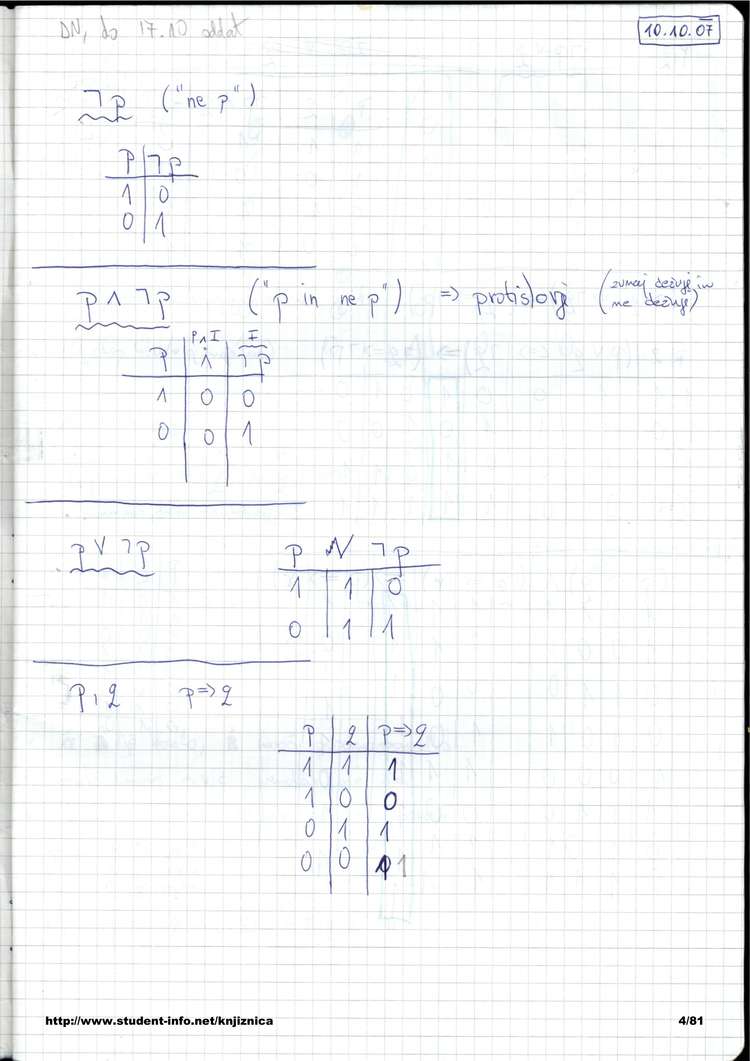 DN, do 17.10 oddat
10.10.07
¬p ("ne p")
p ¬p
1 0
0 1
p ∧ ¬p ("p in ne p") => protislovje (zunaj dežuje in
ne dežuje)
P∧I I
p ∧ ¬p
1 0 0
0 0 1
p ∨ ¬p
p ∨ ¬p
1 1 0
0 1 1
p, q p => q
p q p=>q
1 1 1
1 0 0
0 1 1
0 0 1 1
http://www.student-info.net/knjiznica 4/81